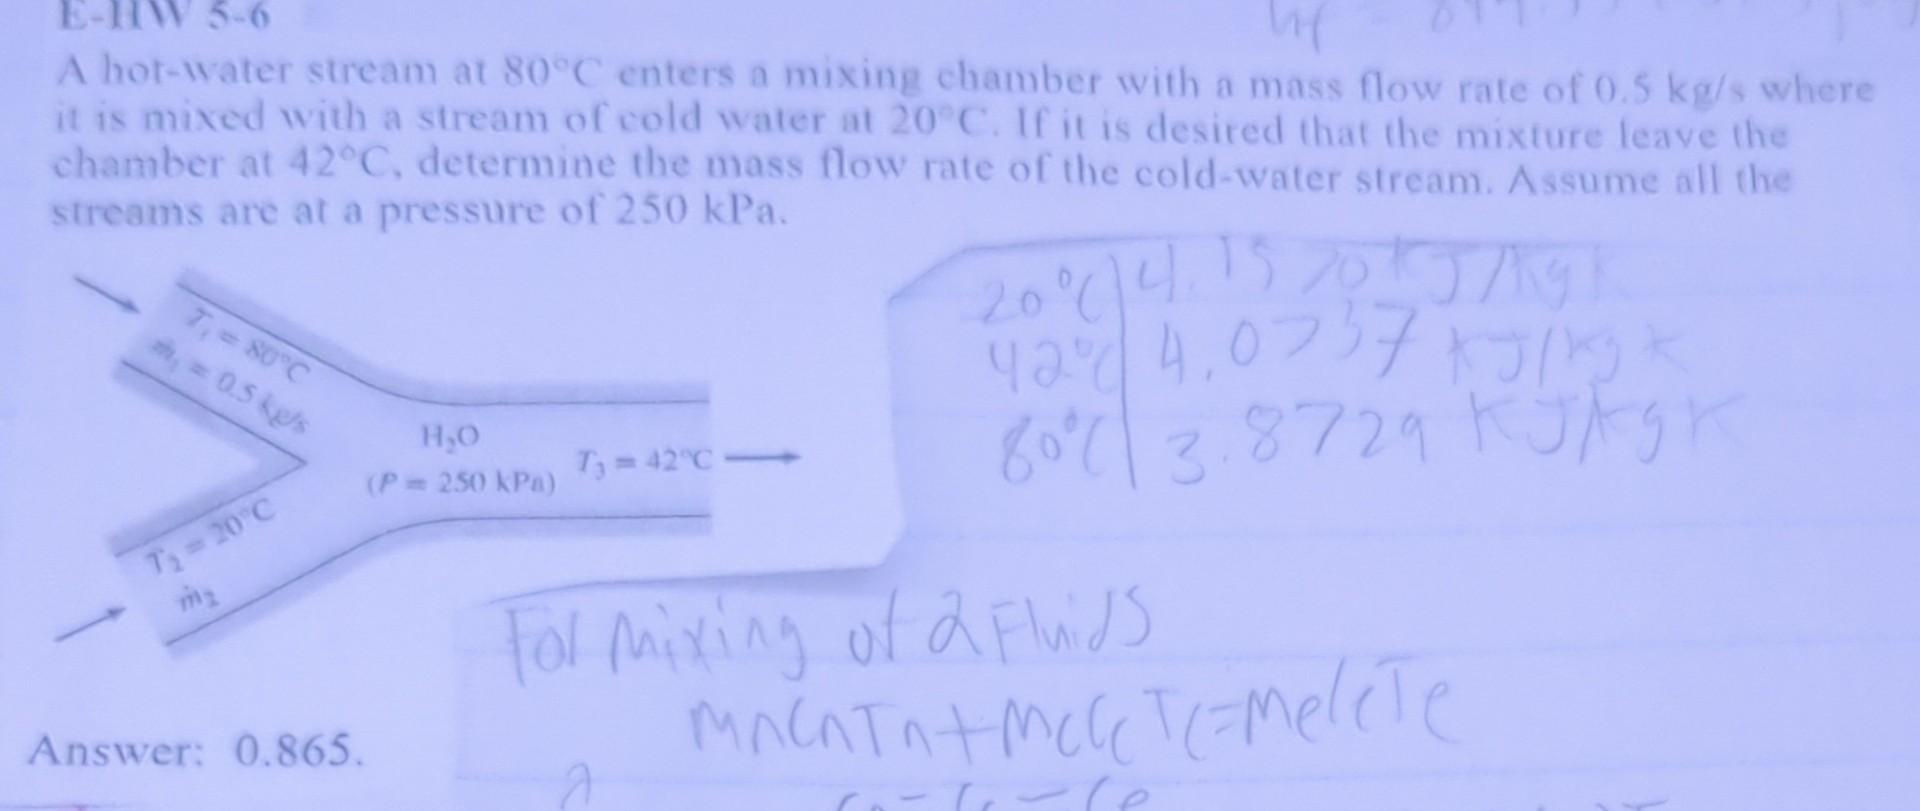 E-HW 5-6
A hot-water stream at 80°C enters a mixing chamber with a mass flow rate of 0.5 kg/s where
it is mixed with a stream of cold water at 20°C. If it is desired that the mixture leave the
chamber at 42°C, determine the mass flow rate of the cold-water stream. Assume all the
streams are at a pressure of 250 kPa.
20°C 4.1570 KJ/kgK
42°C 4.0737 KJ/kgK
80°C 3.8729 KJ/kgK
T₁ = 80°C
ṁ₁ = 0.5 kg/s
H₂O
(P = 250 kPa)
T₃ = 42°C
T₂ = 20°C
ṁ₂
For mixing of 2 Fluids
MnCnTn+McCcTc=MeCeTe
Answer: 0.865.